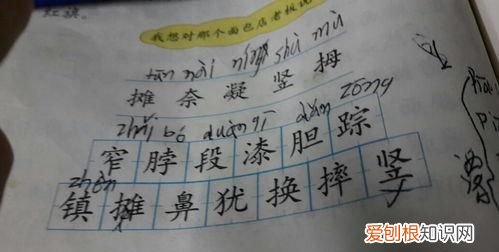 红旗。
我想对那个面包店老板说
tān nài níng shù mǔ
摊 奈 凝 竖 拇
zhǎi bó duàn qī dǎn zōng
窄 脖 段 漆 胆 踪
zhèn
镇 摊 鼻 犹 换 摔 竖
爱刨根知识网